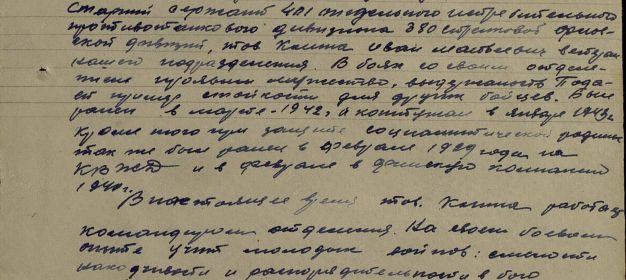 Старший сержант 401 отдельного истребительного
противотанкового дивизиона 380 стрелковой орлов-
ской дивизии, тов Кашка Иван Матвеевич ветеран
нашего подразделения. В боях со своим отделе-
нием проявил мужество, выдержаность Пода-
ет пример стойкости для других бойцев. Был
ранен в марте-1942г, а контужен в январе 1943г.
кроме того при защите социалистической родины
так же был ранен в феврале 1929 года на
КВЖД и в феврале в финскую компанию
1940г.
В настоящее время тов. Кашка работает
командиром отделения. На своем боевом
опыте учит молодых воинов: смелости
находчивости и распорядительности в бою